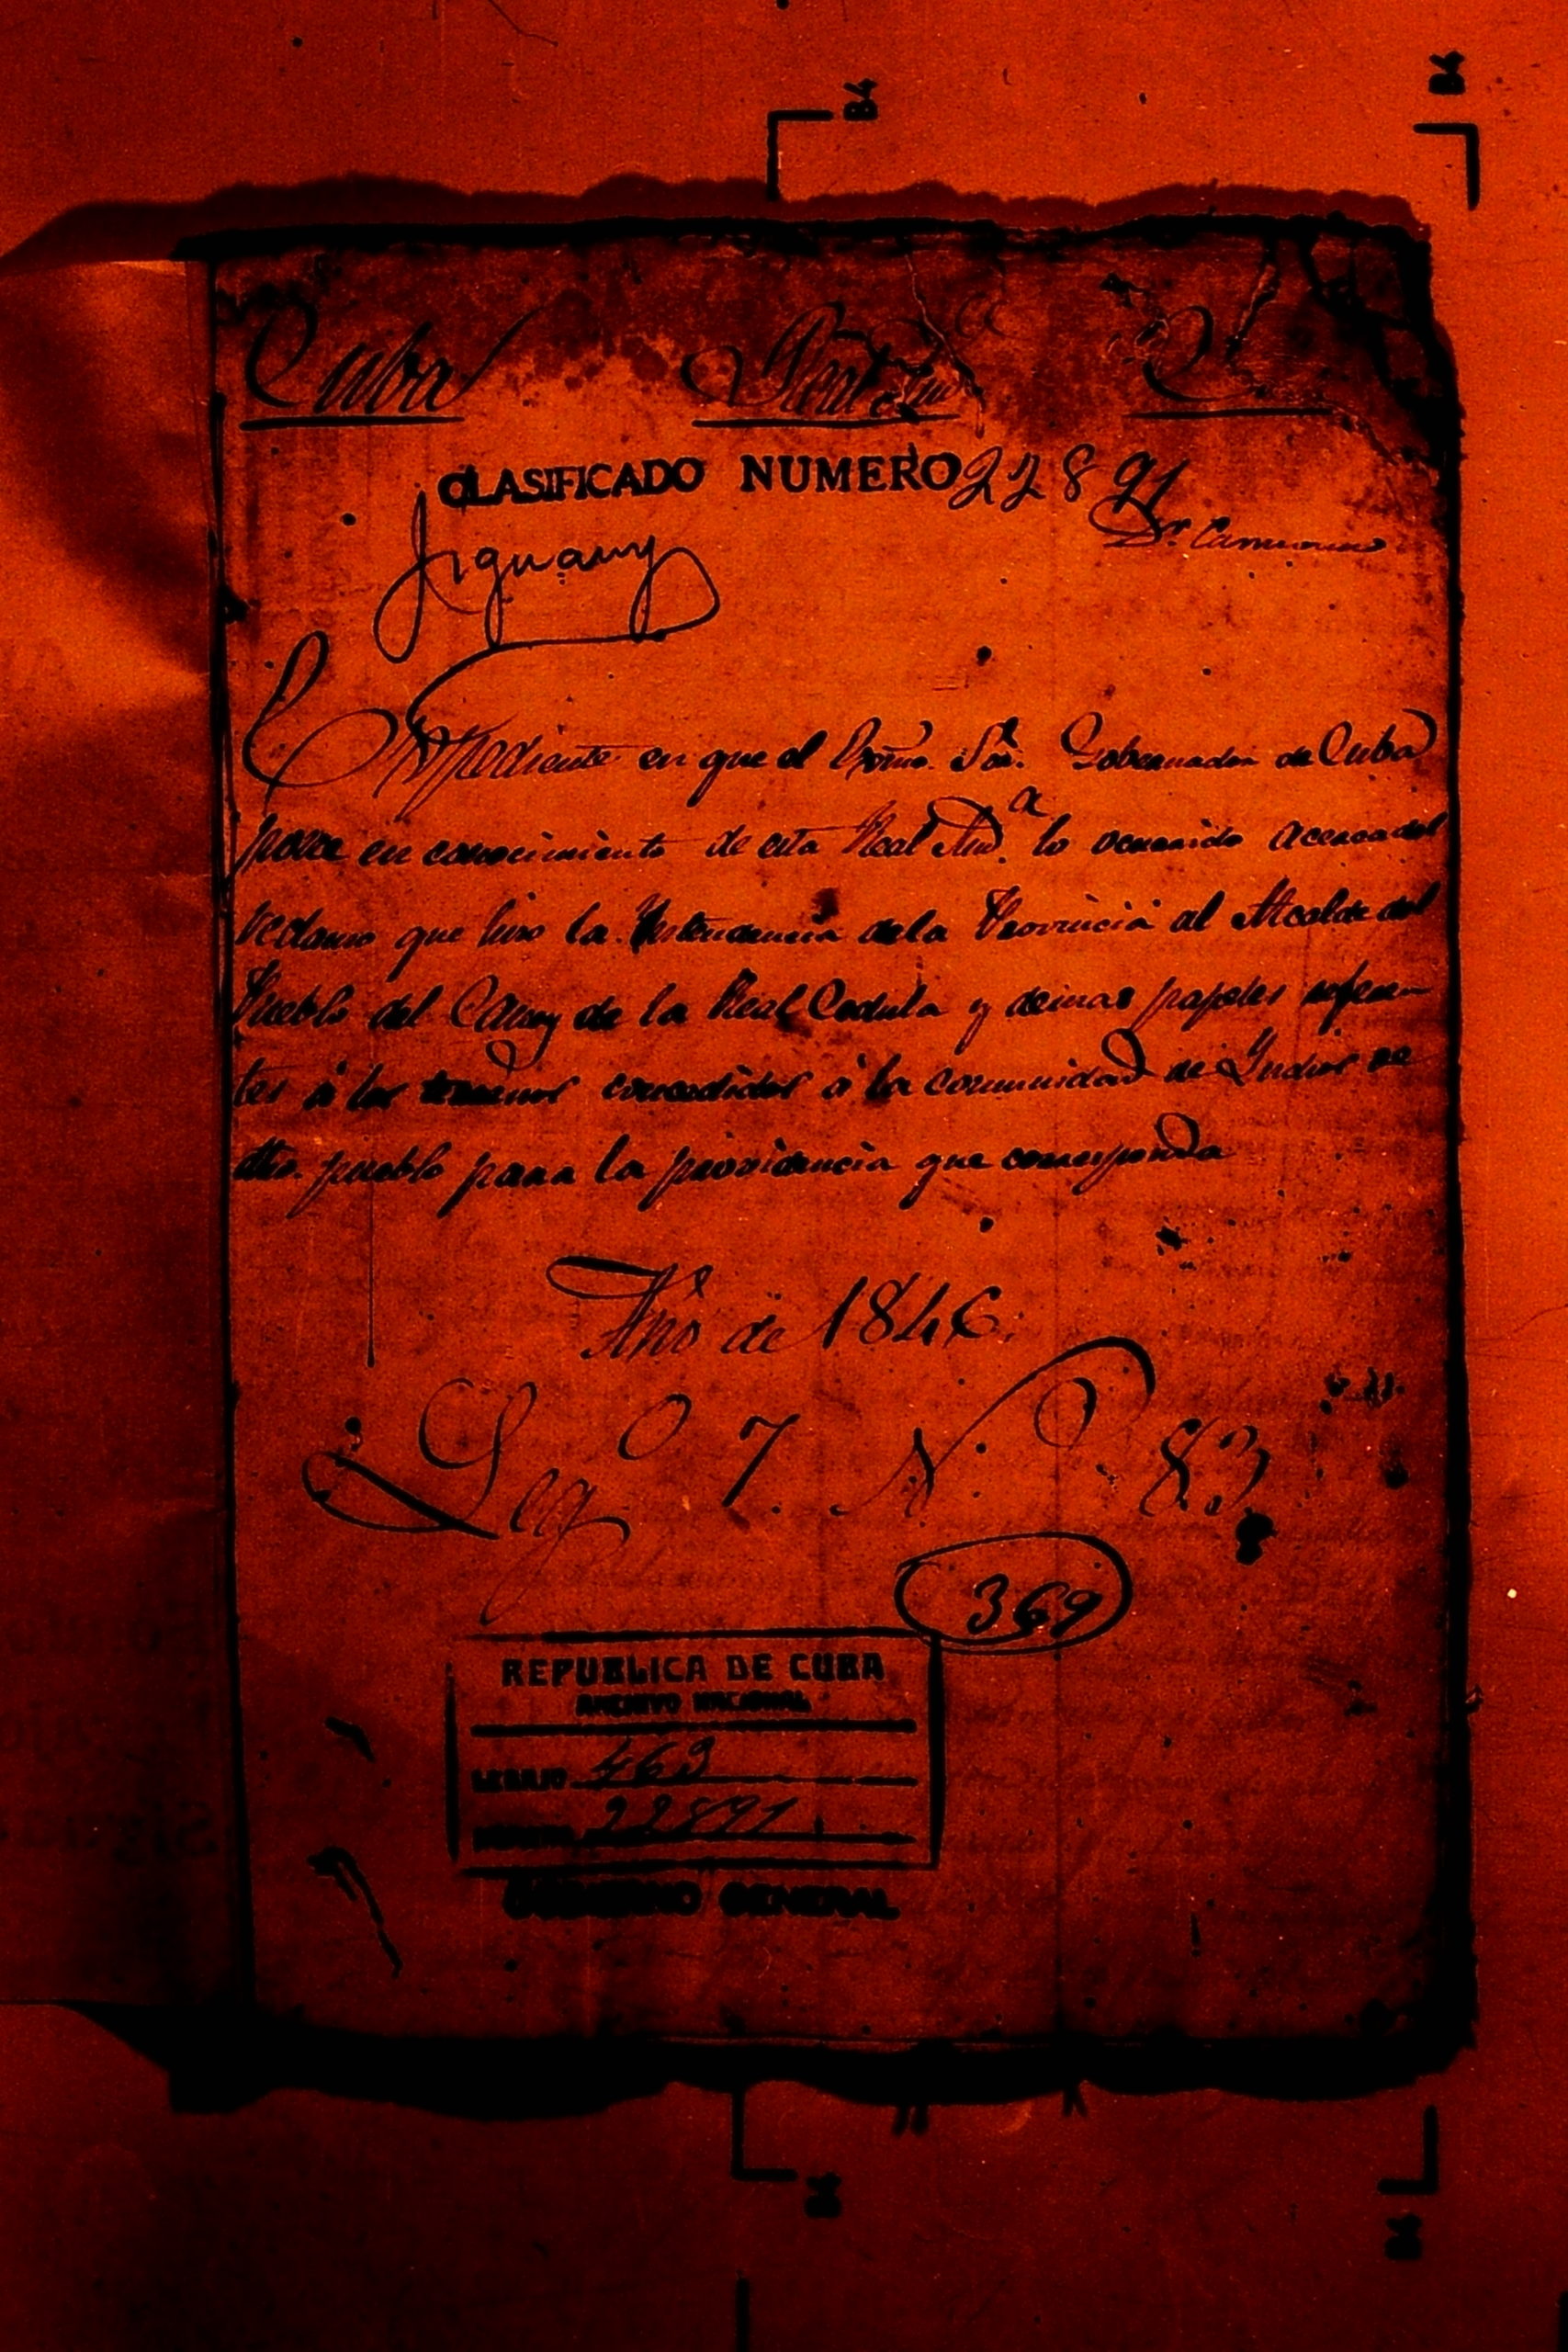 Cuba Real Aud.ca
CLASIFICADO NUMERO 22891
Jiguany
Expediente en que el Exmo. Sor. Gobernador de Cuba
pone en conocimiento de esta Real Aud.a lo ocurrido acerca del
reclamo que hizo la Yntendencia dela Provincia al Alcalde del
Pueblo del Caney de la Real Cedula y demas papeles referen-
tes á los terrenos concedidos á la comunidad de Yndios de
dho. pueblo para la providencia que corresponda
Año de 1846.
Leg.o 7. N.o 83.
369
REPUBLICA DE CUBA
ARCHIVO NACIONAL
LEGAJO 463
22891
GOBIERNO GENERAL
B4
B4
B4
B4